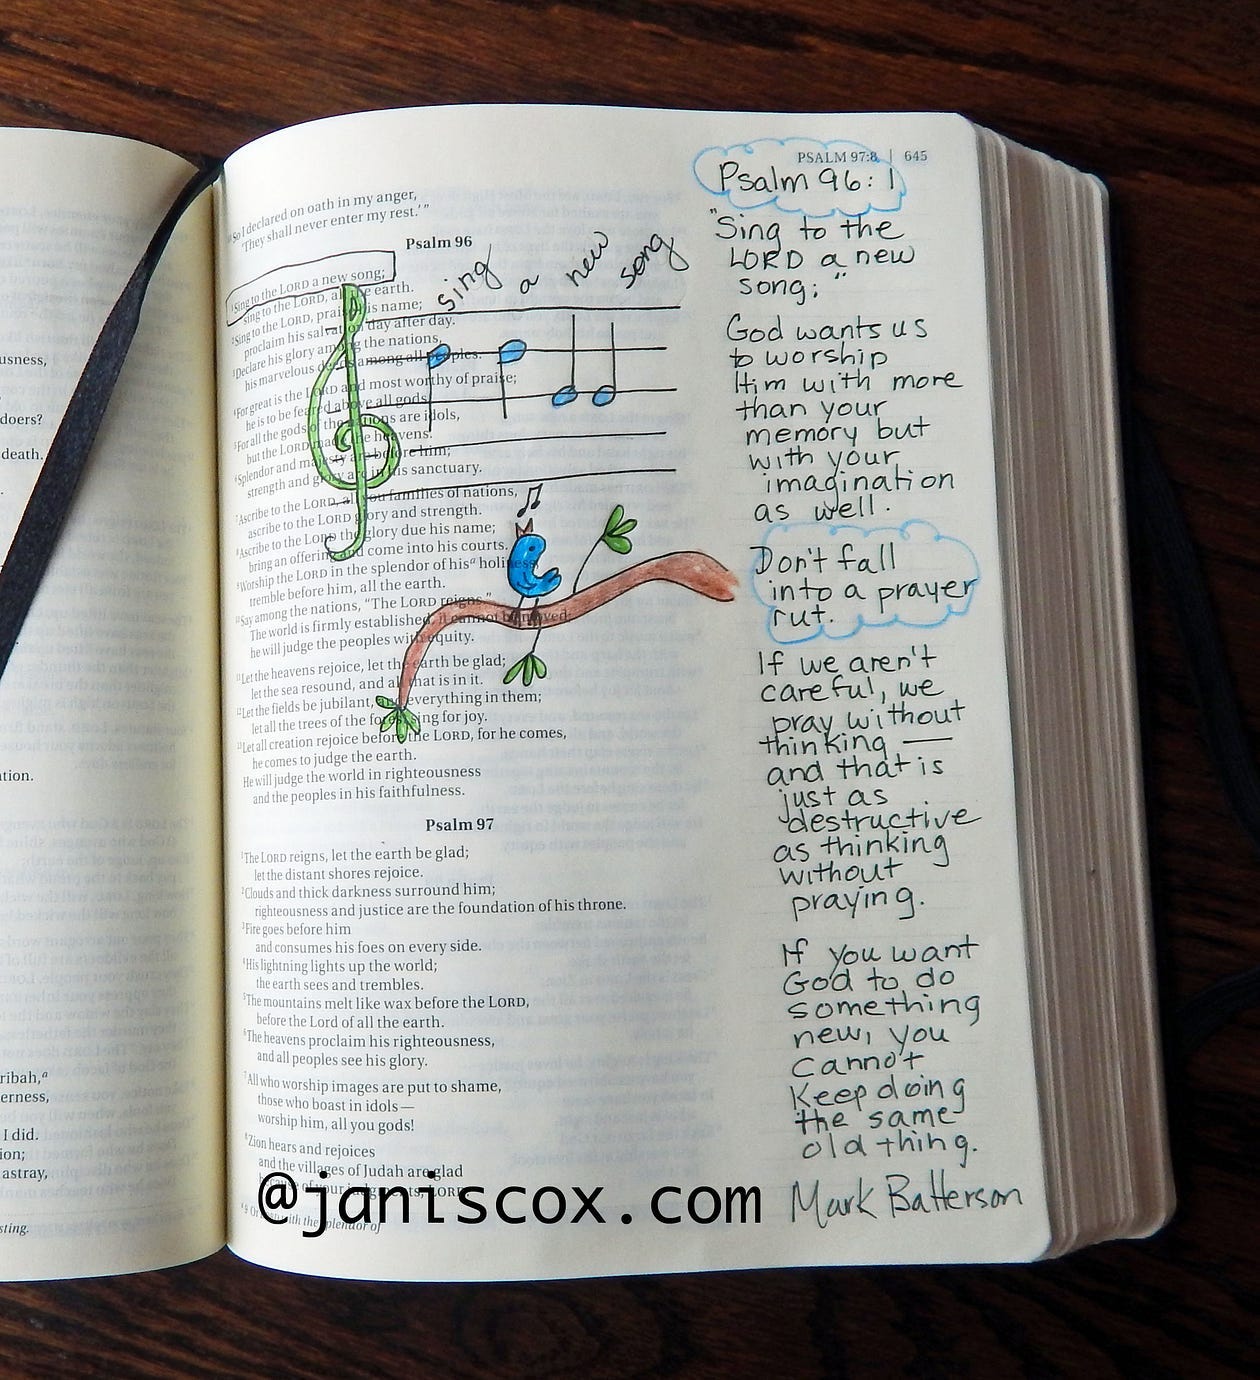 usness,
doers?
death.
ation.
ribah,ᵃ
erness,
I did.
ion;
astray,
sting.
PSALM 97:8 | 645
¹¹So I declared on oath in my anger,
‘They shall never enter my rest.’ ”
Psalm 96
¹Sing to the LORD a new song;
sing to the LORD, all the earth.
²Sing to the LORD, praise his name;
proclaim his salvation day after day.
³Declare his glory among the nations,
his marvelous deeds among all peoples.
⁴For great is the LORD and most worthy of praise;
he is to be feared above all gods.
⁵For all the gods of the nations are idols,
but the LORD made the heavens.
⁶Splendor and majesty are before him;
strength and glory are in his sanctuary.
⁷Ascribe to the LORD, all you families of nations,
ascribe to the LORD glory and strength.
⁸Ascribe to the LORD the glory due his name;
bring an offering and come into his courts.
⁹Worship the LORD in the splendor of hisᵃ holiness;
tremble before him, all the earth.
¹⁰Say among the nations, “The LORD reigns.”
The world is firmly established, it cannot be moved;
he will judge the peoples with equity.
¹¹Let the heavens rejoice, let the earth be glad;
let the sea resound, and all that is in it.
¹²Let the fields be jubilant, and everything in them;
let all the trees of the forest sing for joy.
¹³Let all creation rejoice before the LORD, for he comes,
he comes to judge the earth.
He will judge the world in righteousness
and the peoples in his faithfulness.
Psalm 97
¹The LORD reigns, let the earth be glad;
let the distant shores rejoice.
²Clouds and thick darkness surround him;
righteousness and justice are the foundation of his throne.
³Fire goes before him
and consumes his foes on every side.
⁴His lightning lights up the world;
the earth sees and trembles.
⁵The mountains melt like wax before the LORD,
before the Lord of all the earth.
⁶The heavens proclaim his righteousness,
and all peoples see his glory.
⁷All who worship images are put to shame,
those who boast in idols—
worship him, all you gods!
⁸Zion hears and rejoices
and the villages of Judah are glad
of your judgments, LORD.
with the splendor of
sing a new song
Psalm 96:1
"Sing to the
LORD a new
song;"
God wants us
to worship
Him with more
than your
memory but
with your
imagination
as well.
Don't fall
into a prayer
rut.
If we aren't
careful, we
pray without
thinking —
and that is
just as
destructive
as thinking
without
praying.
If you want
God to do
something
new, you
cannot
Keep doing
the same
old thing.
Mark Batterson
@janiscox.com